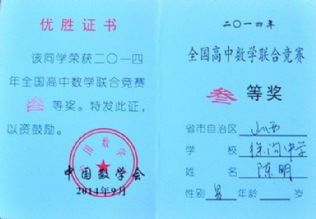 优胜证书
该同学荣获二〇一四
年全国高中数学联合竞赛
叁等奖。特发此证，
以资鼓励。
中国数学会
2014年9月
二〇一四年
全国高中数学联合竞赛
叁等奖
省市自治区 山西
学校 中学
姓名 陈明
性别 男 年龄 岁